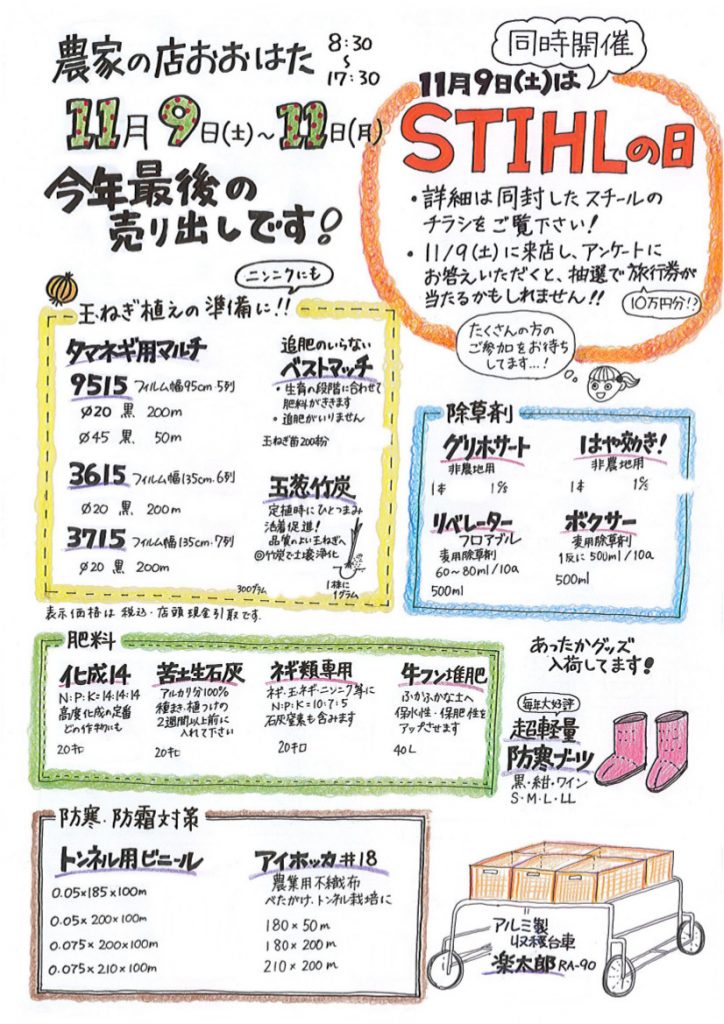 農家の店おおはた
8:30
~
17:30
11月9日(土)~11日(月)
今年最後の
売り出しです!
同時開催
11月9日(土)は
STIHLの日
・詳細は同封したスチールの
チラシをご覧下さい!
・11/9(土)に来店し、アンケートに
お答えいただくと、抽選で旅行券が
当たるかもしれません!!
10万円分!?
たくさんの方の
ご参加をお待ち
してます…!
ニンニクにも
玉ねぎ植えの準備に!!
タマネギ用マルチ
9515 フィルム幅95cm・5列
Φ20 黒 200m
Φ45 黒 50m
3615 フィルム幅135cm・6列
Φ20 黒 200m
3715 フィルム幅135cm・7列
Φ20 黒 200m
追肥のいらない
ベストマッチ
・生育の段階に合わせて
肥料がききます
・追肥がいりません
玉ねぎ苗200本分
玉葱竹炭
定植時にひとつまみ
活着促進!
品質のよい玉ねぎへ
◎竹炭で土壌浄化
300グラム
1株に
1グラム
表示価格は税込・店頭現金引取です
除草剤
グリホサート
非農地用
1本 1ケース
はや効き!
非農地用
1本 1ケース
リベレーター
フロアブル
麦用除草剤
60~80ml/10a
500ml
ボクサー
麦用除草剤
1反に500ml/10a
500ml
肥料
化成14
N:P:K=14:14:14
高度化成の定番
どの作物にも
20キロ
苦土生石灰
アルカリ分100%
種まき・植つけの
2週間以上前に
入れて下さい
20キロ
ネギ類専用
ネギ・玉ネギ・ニンニク等に
N:P:K=10:7:5
石灰窒素も含みます
20キロ
牛フン堆肥
ふかふかな土へ
保水性・保肥性を
アップさせます
40L
あったかグッズ
入荷してます!
毎年大好評
超軽量
防寒ブーツ
黒・紺・ワイン
S・M・L・LL
防寒・防霜対策
トンネル用ビニール
0.05×185×100m
0.05×200×100m
0.075×200×100m
0.075×210×100m
アイホッカ#18
農業用不織布
べたがけ、トンネル栽培に
180×50m
180×200m
210×200m
アルミ製
収穫台車
楽太郎 RA-90